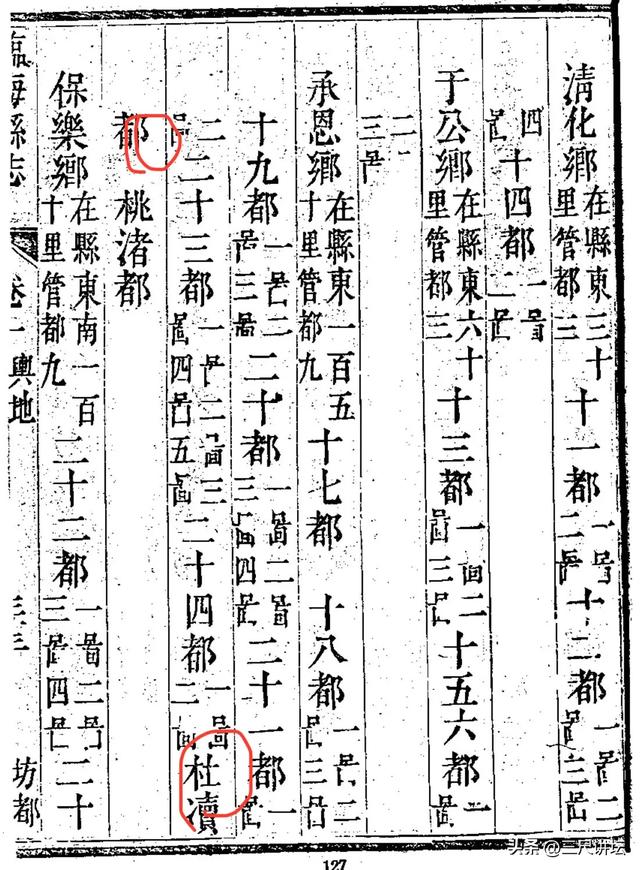 清化鄉在縣東三十里管都三十一都一啚二啚十二都一啚二啚三啚
四啚十四都一啚二啚
于公鄉在縣東六十里管都三十三都一啚二啚三啚十五六都一啚
二啚三啚
承恩鄉在縣東一百五十里管都九十七都 十八都一啚二啚三啚
十九都一啚二啚三啚二十都一啚二啚三啚四啚二十一都一啚
二啚二十三都一啚二啚三啚四啚五啚二十四都一啚二啚杜瀆
都 桃渚都
保樂鄉在縣東南一百十里管都九二十二都一啚二啚三啚四啚二十
臨海縣志 卷一 輿地 坊都
127
头条 @三尺讲坛